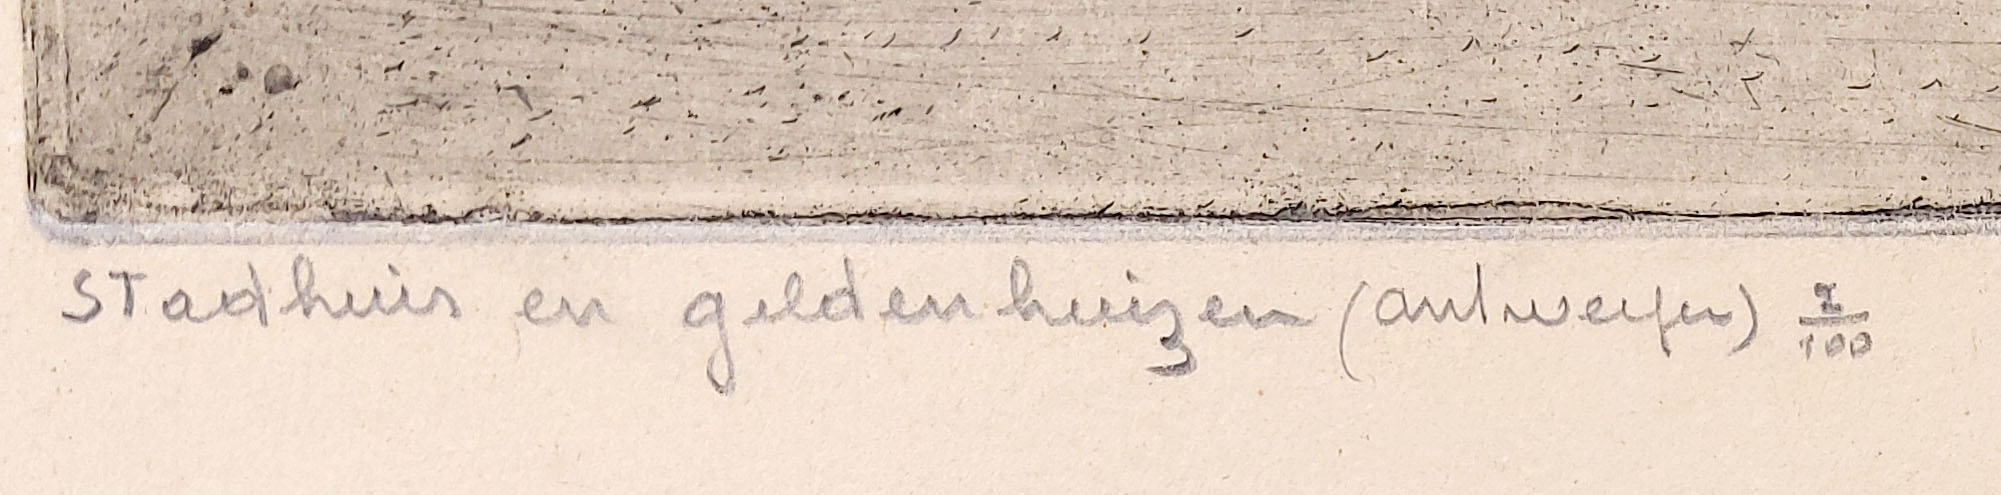 Stadhuis en gildenhuizen (antwerpen) I/100